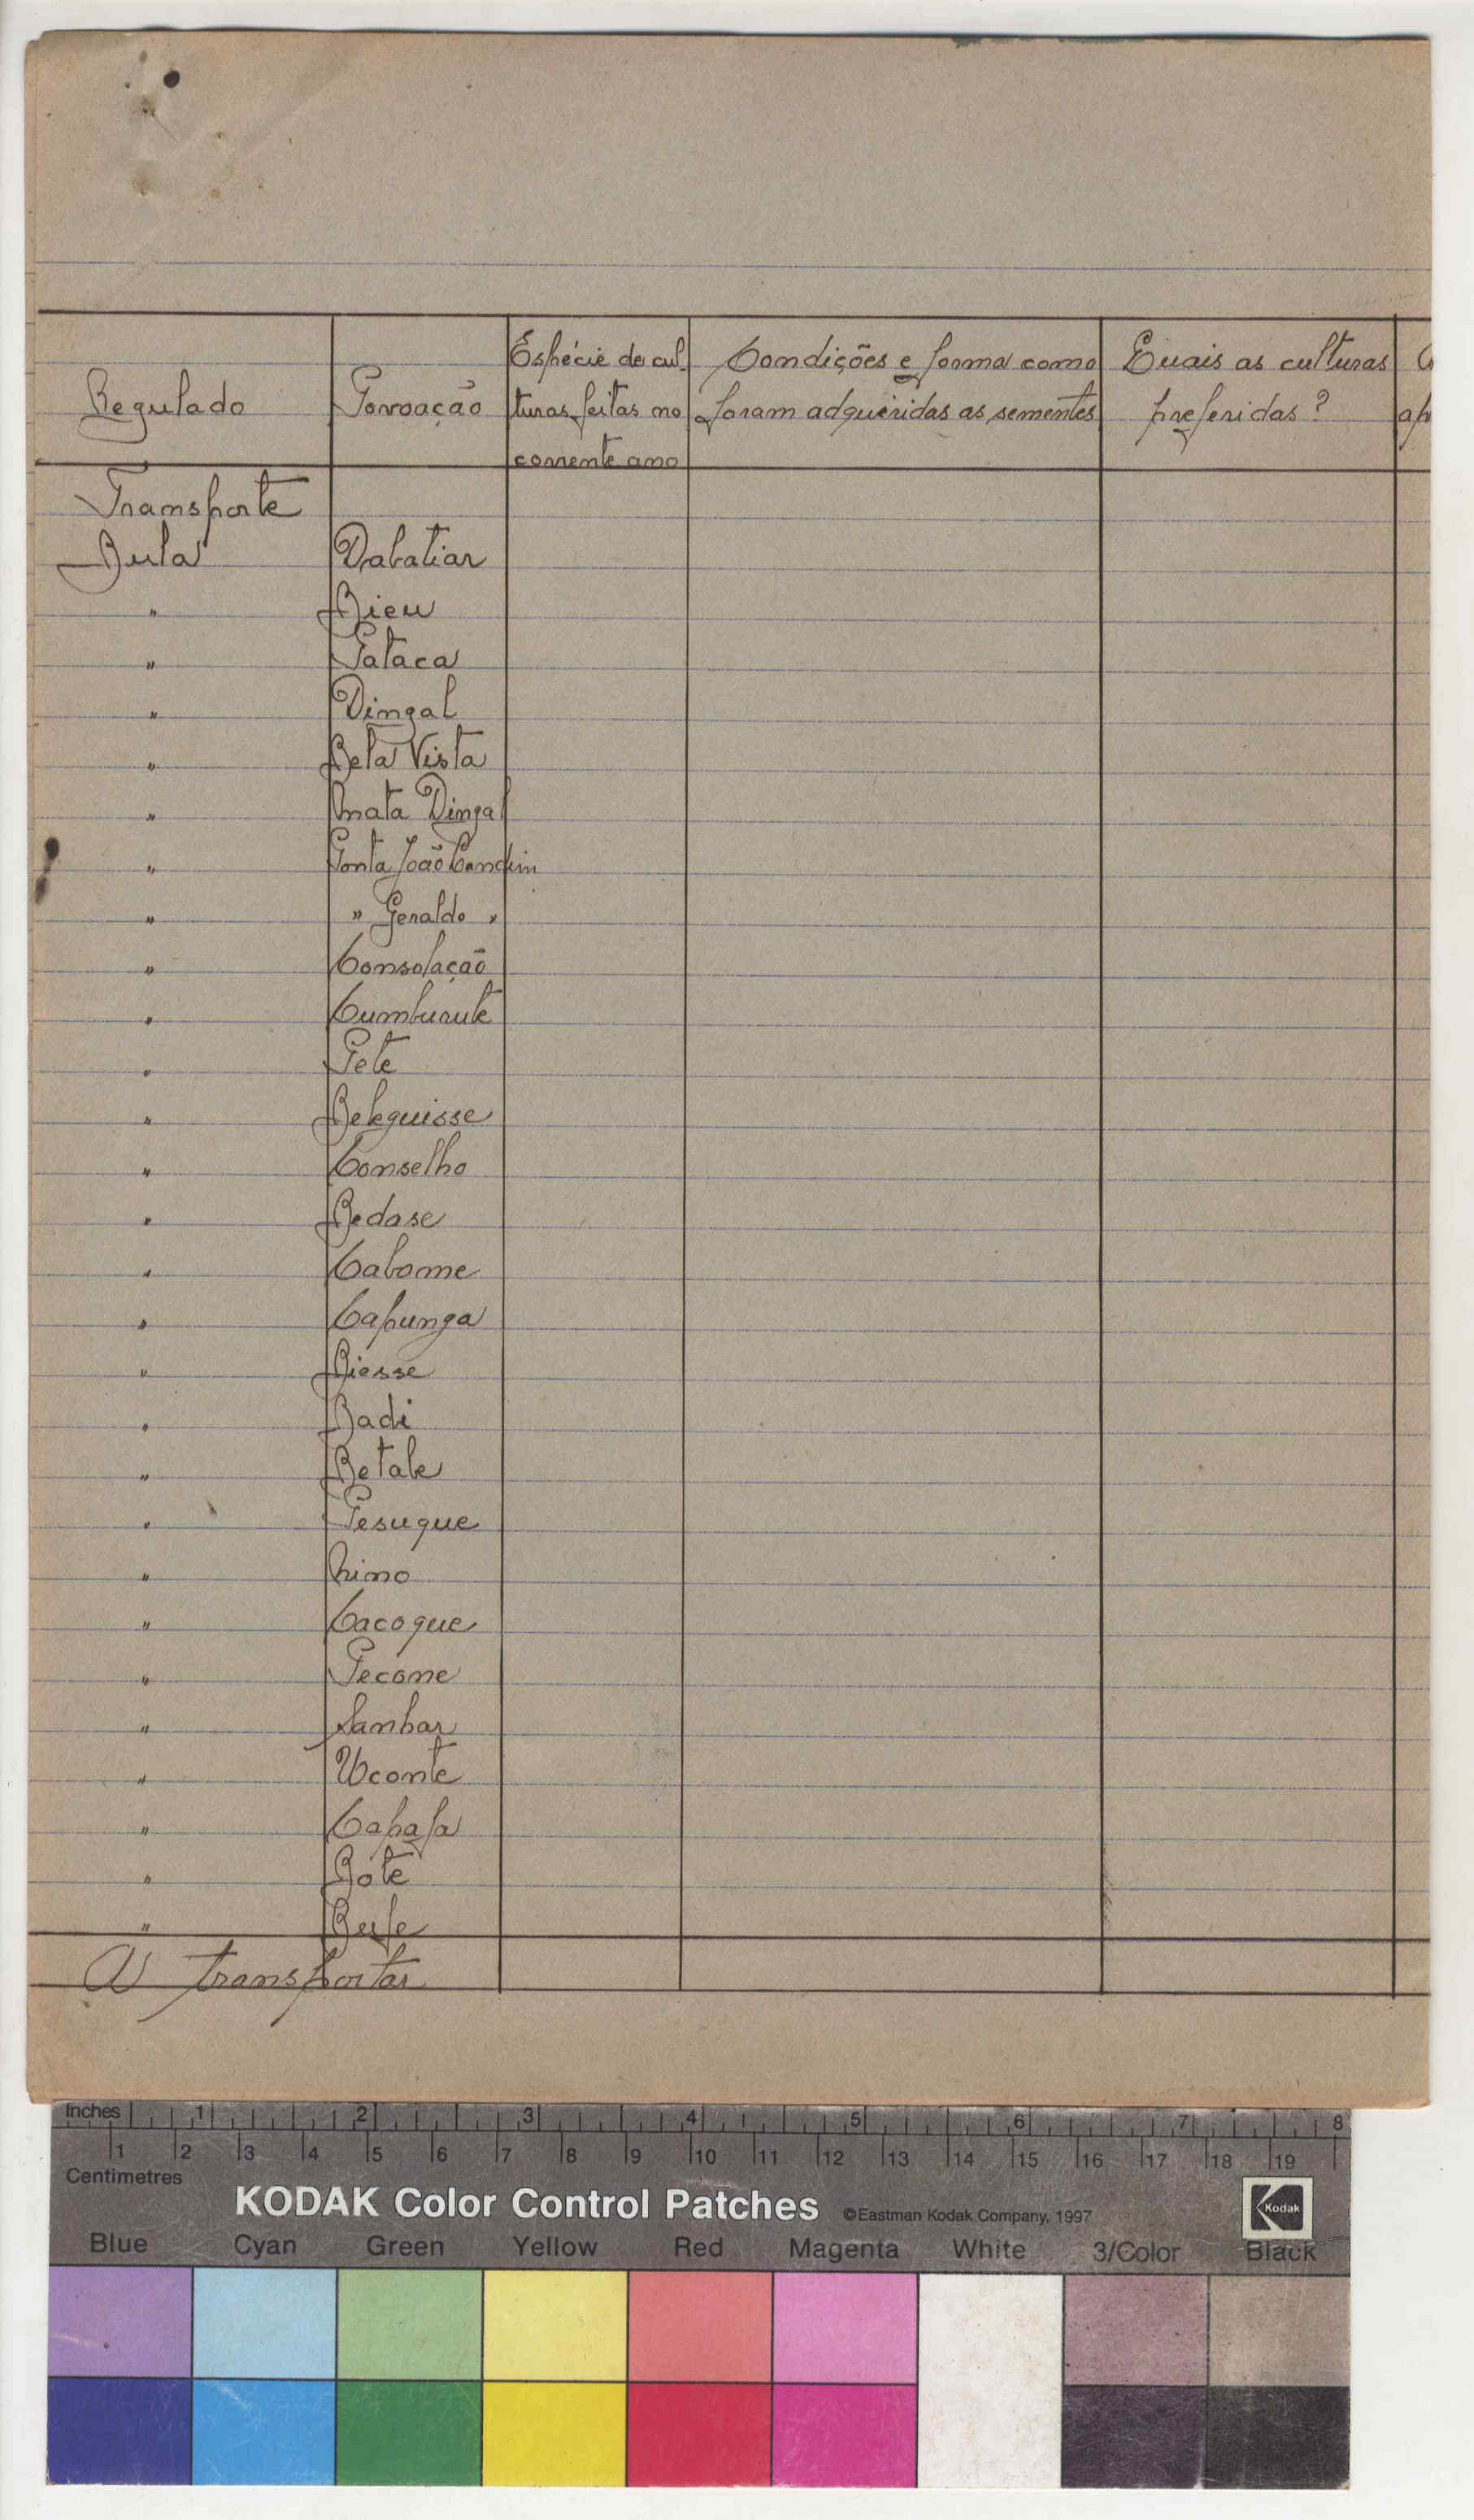 Regulado Povoação Espécie de cul- Condições e forma como Quais as culturas
turas feitas no foram adqueridas as sementes preferidas? ap
corrente ano
Transporte
Bula Dabatiar
" Bieu
" Pataca
" Dingal
" Bela Vista
" mata Dingal
" Ponta João Landim
" " Geraldo "
" Consolação
" Cumburute
" Pete
" Beleguisse
" Conselho
" Bedase
" Cabome
" Capunga
" Biesse
" Badi
" Betale
" Pesugue
" nimo
" Cacogue
" Pecone
" Sanhar
" Uconte
" Capafa
" Bóte
" Bufe
A transportar
Inches 1 2 3 4 5 6 7 8
1 2 3 4 5 6 7 8 9 10 11 12 13 14 15 16 17 18 19
Centimetres
KODAK Color Control Patches ©Eastman Kodak Company, 1997 Kodak
Blue Cyan Green Yellow Red Magenta White 3/Color Black